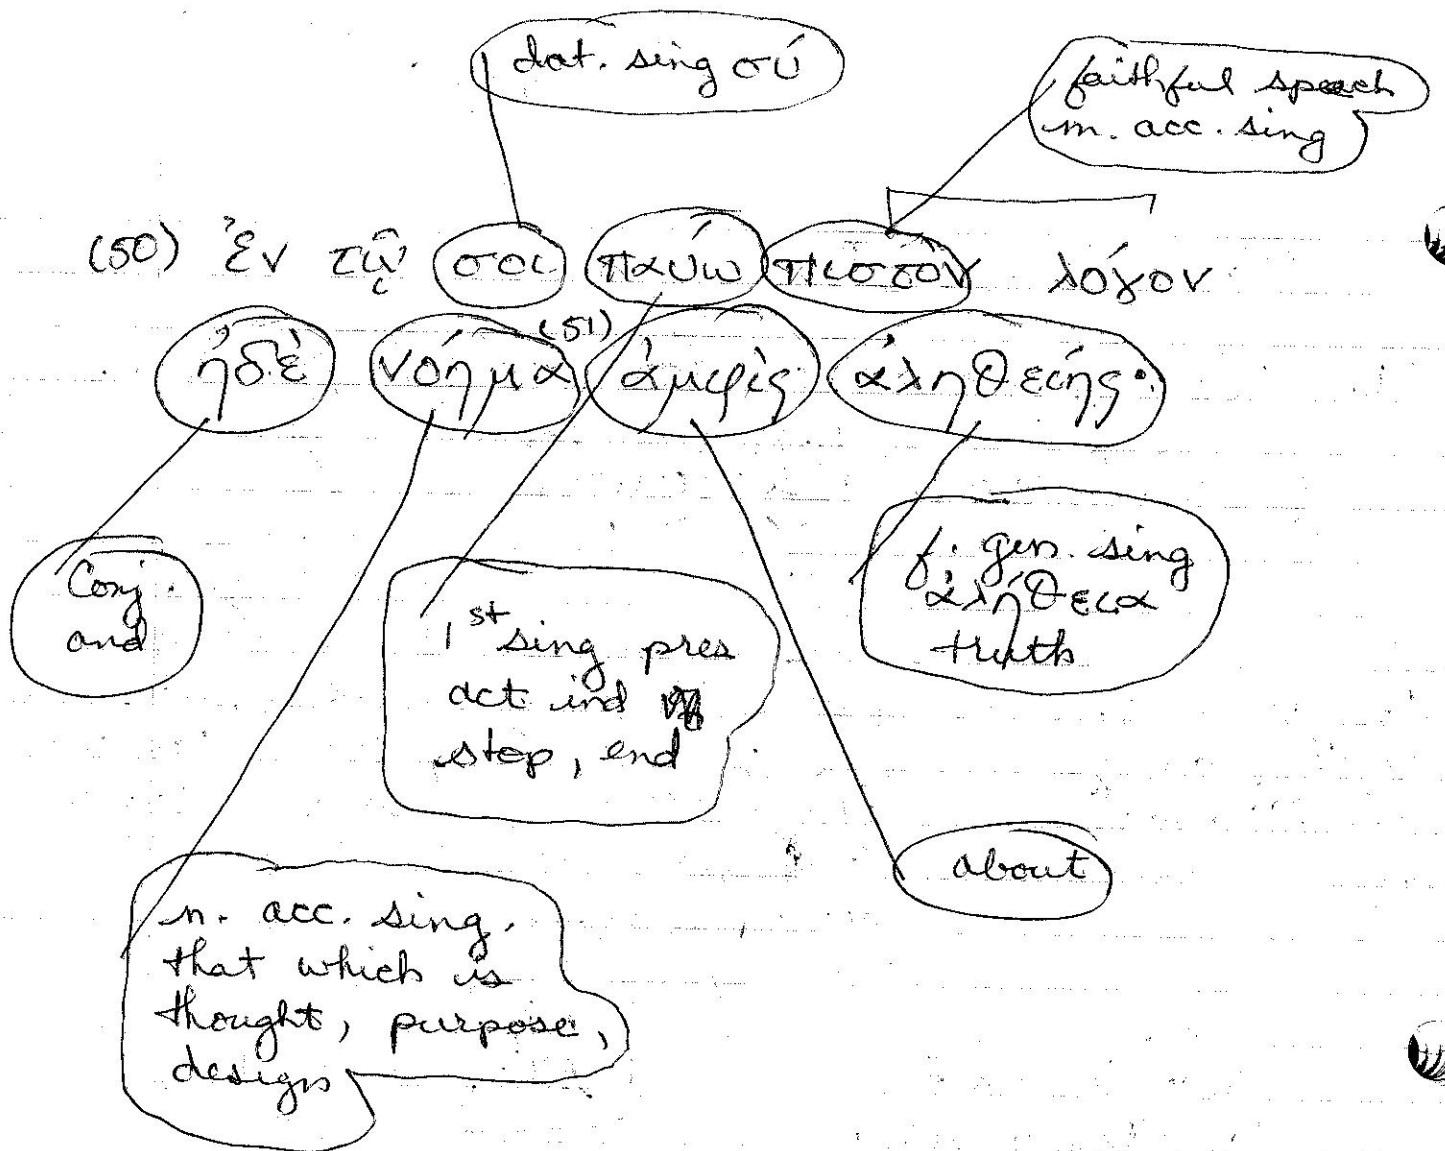 dat. sing σύ
faithful speech
m. acc. sing
(50) ἐν τῷ σοι παύω πιστὸν λόγον
ἠδὲ νόημα (51) ἀμφὶς ἀληθείης·
Conj.
and
1st sing pres
act ind
stop, end
f. gen. sing
ἀλήθεια
truth
about
n. acc. sing.
that which is
thought, purpose,
design